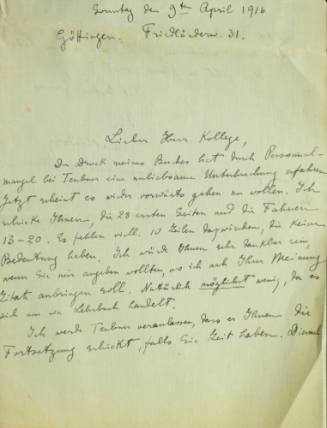 Sonntag den 9ten April 1916
Göttingen. Friedländerw. 31.
Lieber Herr Kollege,
Der Druck meines Buches hat durch Personal-
mangel bei Teubner eine unliebsame Unterbrechung erfahren
Jetzt scheint es wieder vorwärts gehen zu wollen. Ich
schicke Ihnen, die 28 ersten Seiten und die Fahnen
13-20. Es fehlen viell. 10 Zeilen dazwischen, die keine
Bedeutung haben. Ich würde Ihnen sehr dankbar sein,
wenn Sie mir angeben wollten, wo ich nach Ihrer Meinung
Zitate anbringen soll. Natürlich möglichst wenig, da es
sich um ein Lehrbuch handelt.
Ich werde Teubner veranlassen, dass er Ihnen die
Fortsetzung schickt, falls Sie Zeit haben.